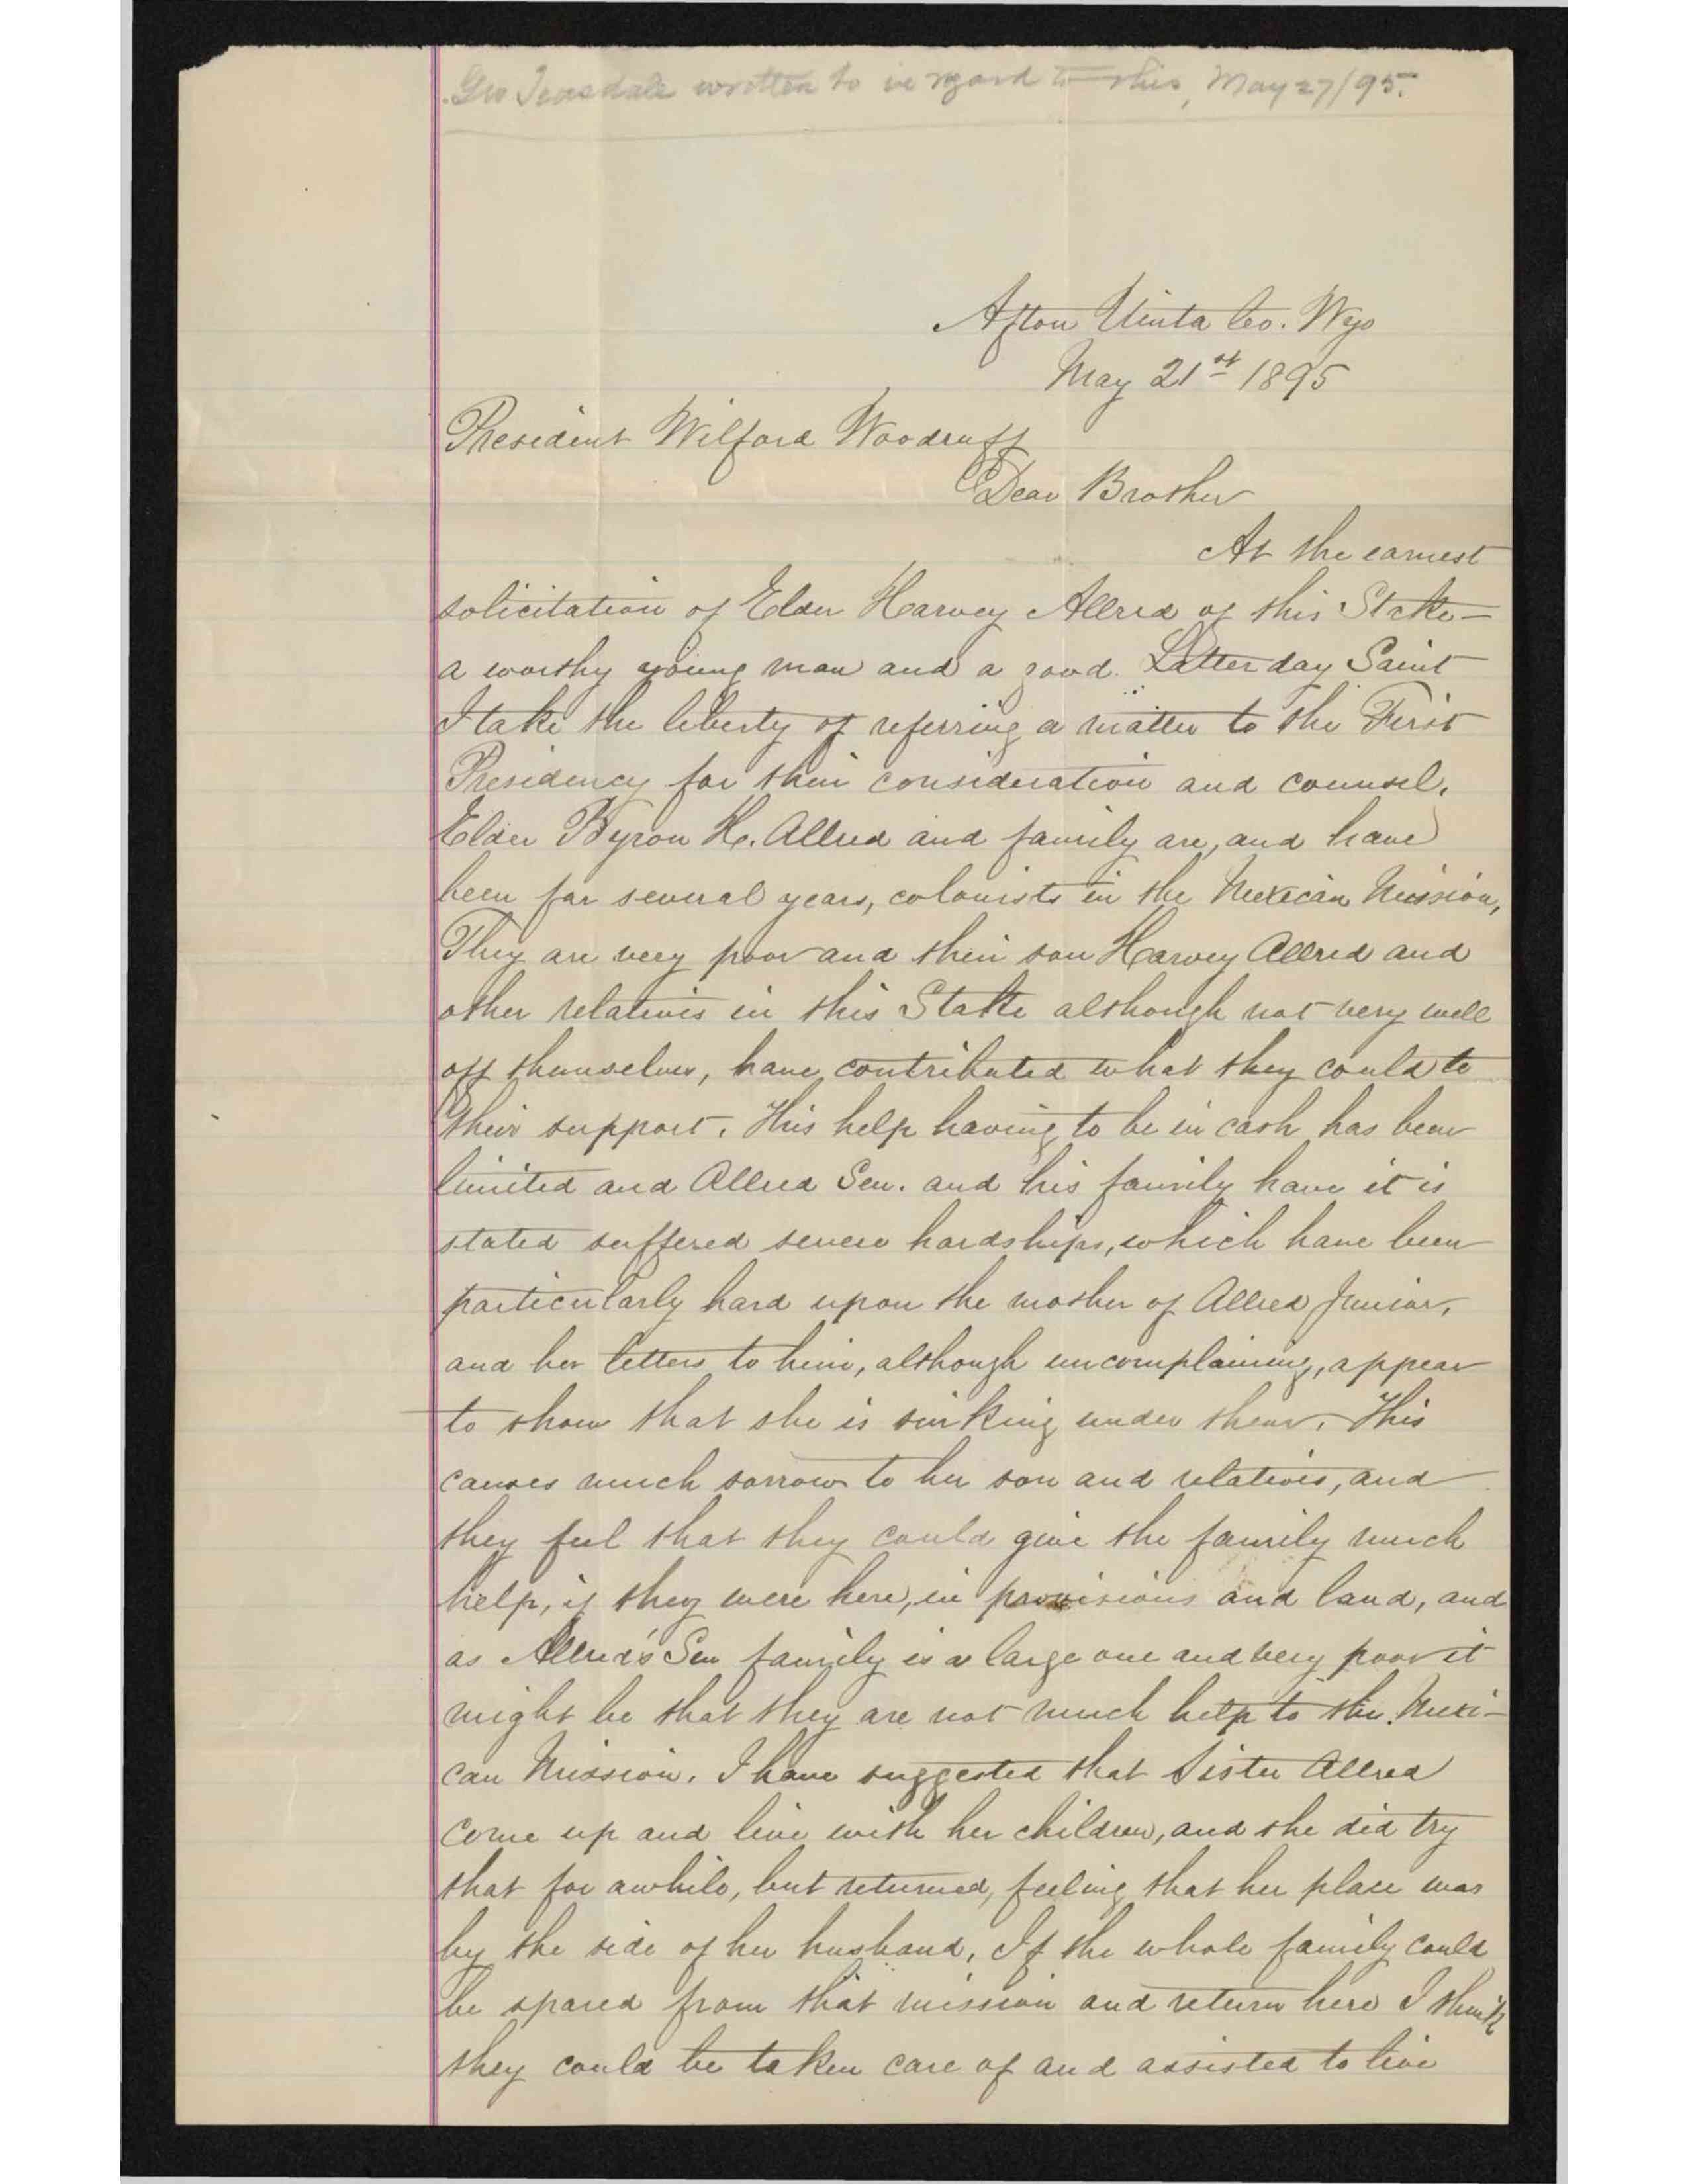 Geo Teasdale written to in regard to this, May 27/95.
Afton Uinta Co. Wyo
May 21st 1895
President Wilford Woodruff
Dear Brother
At the earnest
solicitation of Elder Harvey Allred of this Stake—
a worthy young man and a good Latter day Saint
I take the liberty of referring a matter to the First
Presidency for their consideration and counsel.
Elder Byron H. Allred and family are, and have
been for several years, colonists in the Mexican Mission,
They are very poor and their son Harvey Allred and
other relatives in this Stake although not very well
off themselves, have contributed what they could to
their support. This help having to be in cash has been
limited and Allred Sen. and his family have it is
stated suffered severe hardships, which have been
particularly hard upon the mother of Allred Junior,
and her letters to him, although uncomplaining, appear
to show that she is sinking under them. This
causes much sorrow to her son and relatives, and
they feel that they could give the family much
help, if they were here, in provisions and land, and
as Allred's Sen family is a large one and very poor it
might be that they are not much help to the Mexi-
can Mission. I have suggested that Sister Allred
come up and live with her children, and she did try
that for awhile, but returned, feeling that her place was
by the side of her husband. If the whole family could
be spared from that mission and return here I think
they could be taken care of and assisted to live